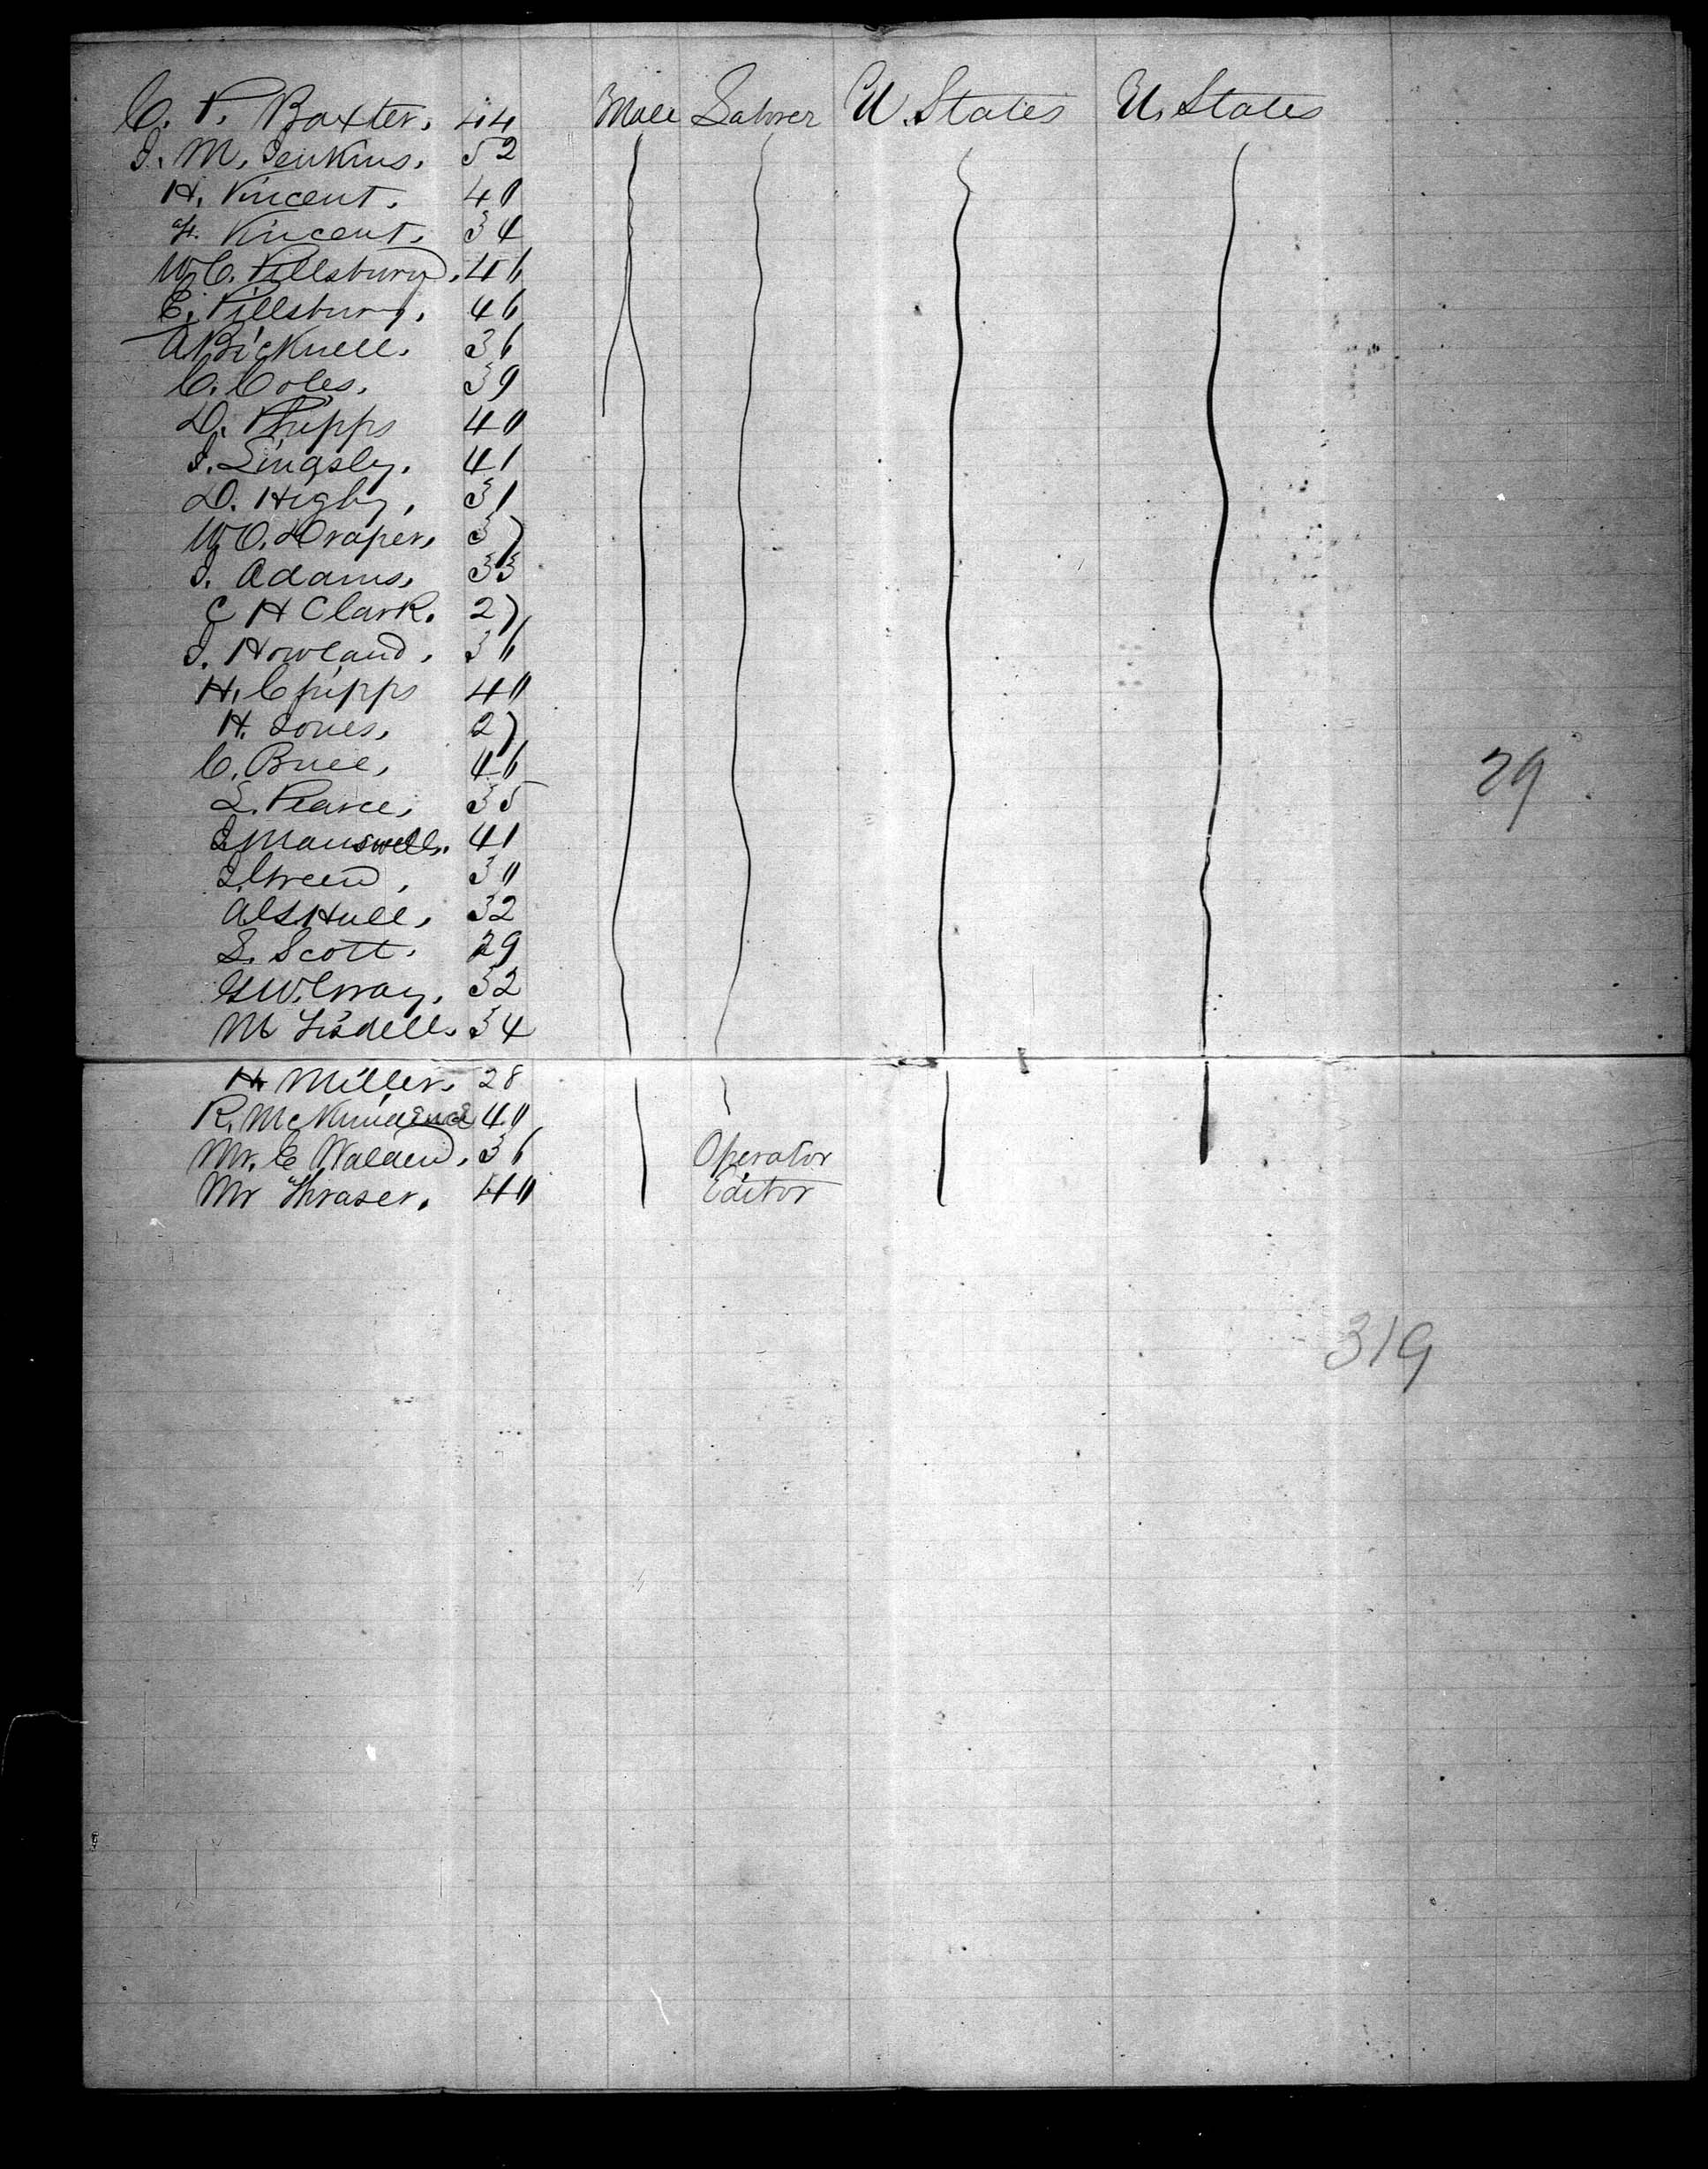 C. P. Baxter. 44 Male Laborer U. States U. States
J. M. Jenkins. 52
H. Vincent. 40
F. Vincent. 34
W. C. Pillsbury. 46
E. Pillsbury. 46
A Bicknell. 36
C. Coles. 39
D. Phipps 40
J. Lingsley. 41
D. Higby. 31
W. O. Draper. 37
J. Adams. 33
C H Clark. 27
J. Howland. 36
H. Chipps 40
H. Jones. 27
C. Buel. 46
L. Pearce. 35
J. Manswell. 41
J. Green. 30
Hull. 32
S. Scott. 29
G. W. Gray. 32
M Tisdell. 34
H Miller. 28
R. 40
Mr. C Walden. 36 Operator
Mr Thraser. 40 Editor
29
319